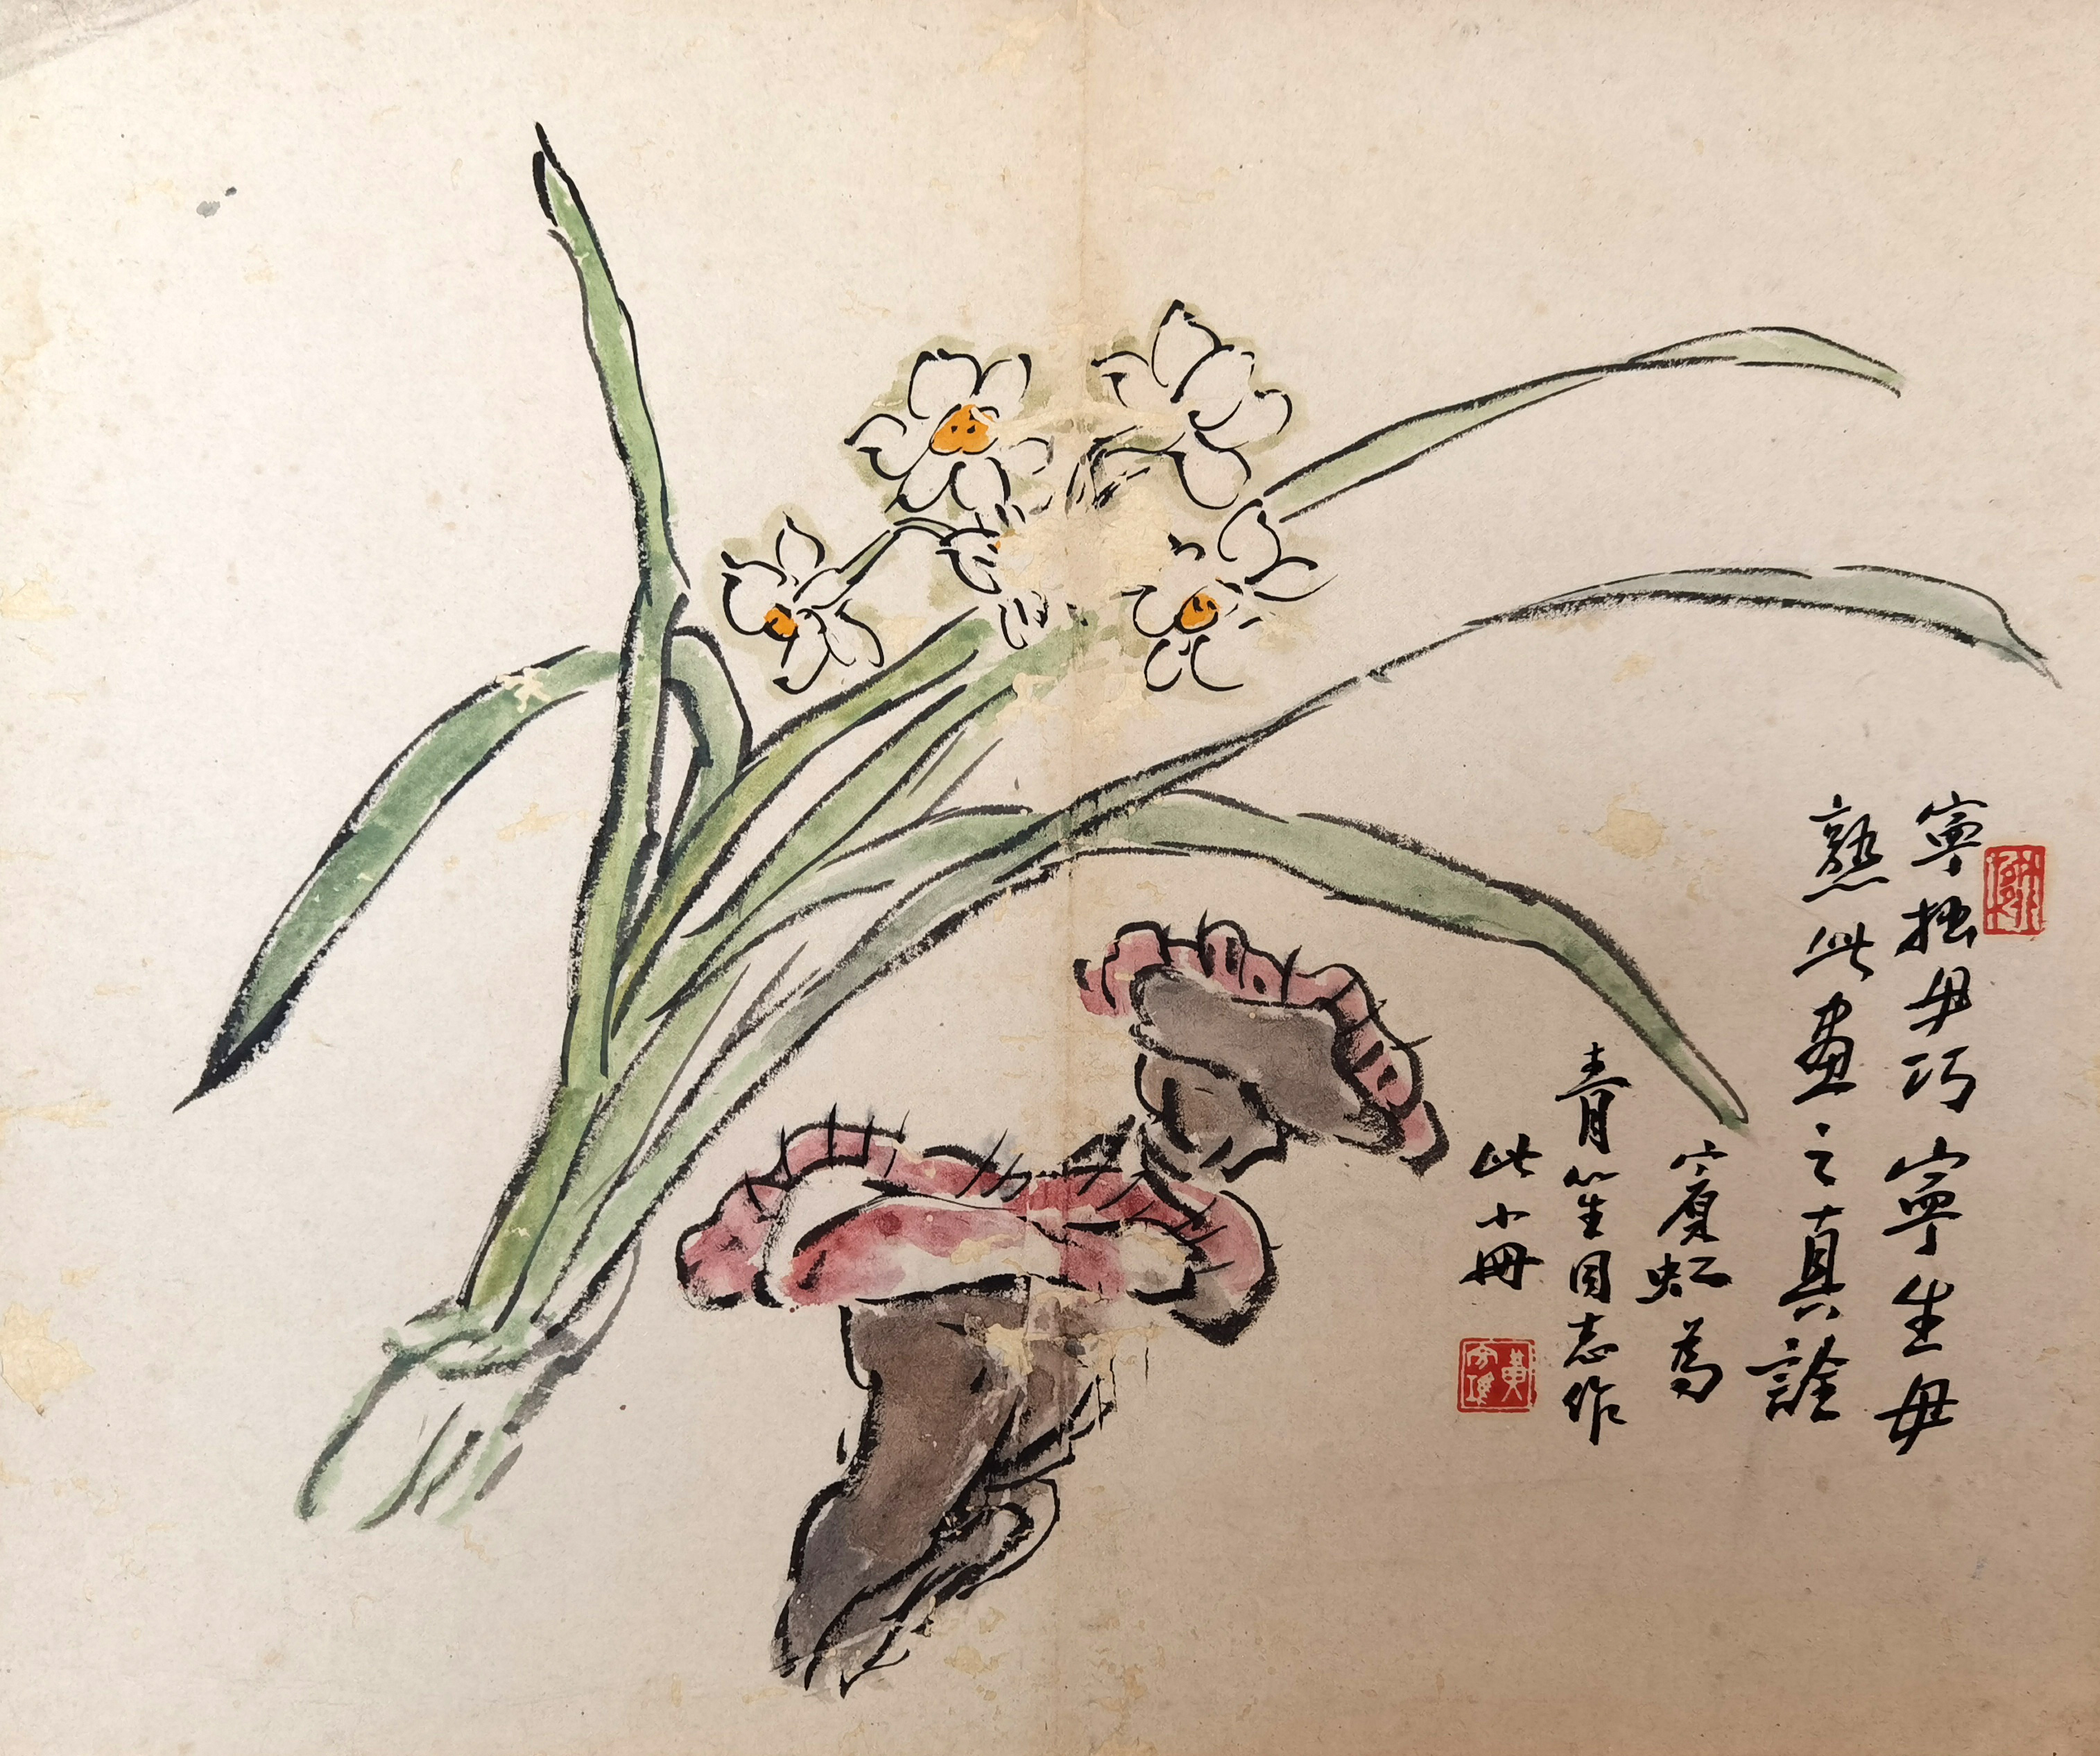 寧拙毋巧寧生毋
熟此畫之真詮
賓虹為
青笙同志作
此小冊
黃